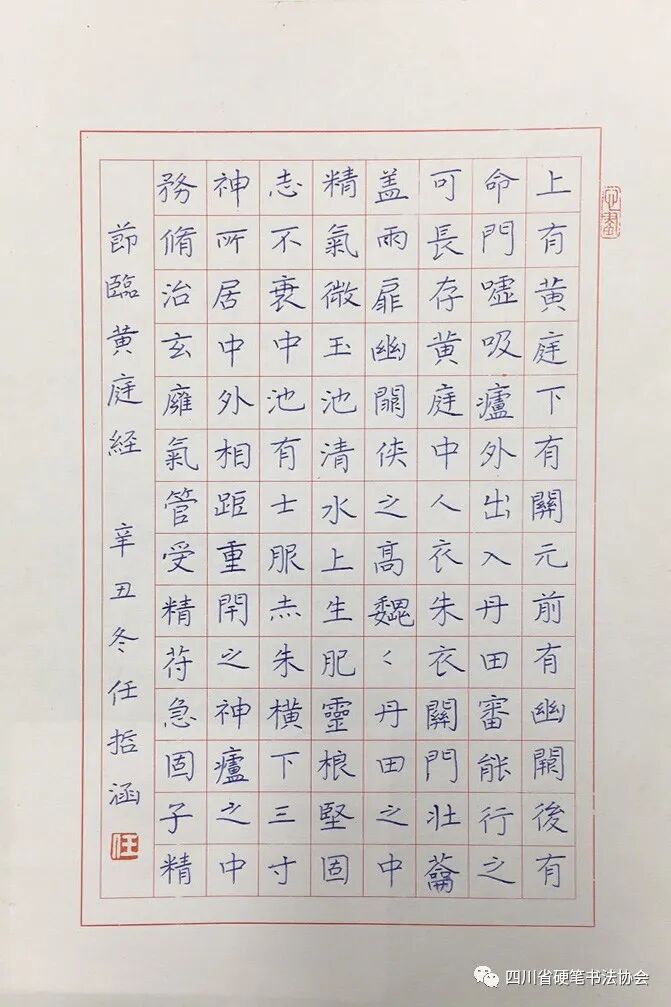 上有黃庭下有關元前有幽闕後有
命門噓吸廬外出入丹田審能行之
可長存黃庭中人衣朱衣關門壯蘥
盖兩扉幽闕俠之高巍〻丹田之中
精氣微玉池清水上生肥靈根堅固
志不衰中池有士服赤朱橫下三寸
神所居中外相距重閇之神廬之中
務脩治玄廱氣管受精苻急固子精
節臨黄庭経 辛丑冬任哲涵
任
四川省硬笔书法协会